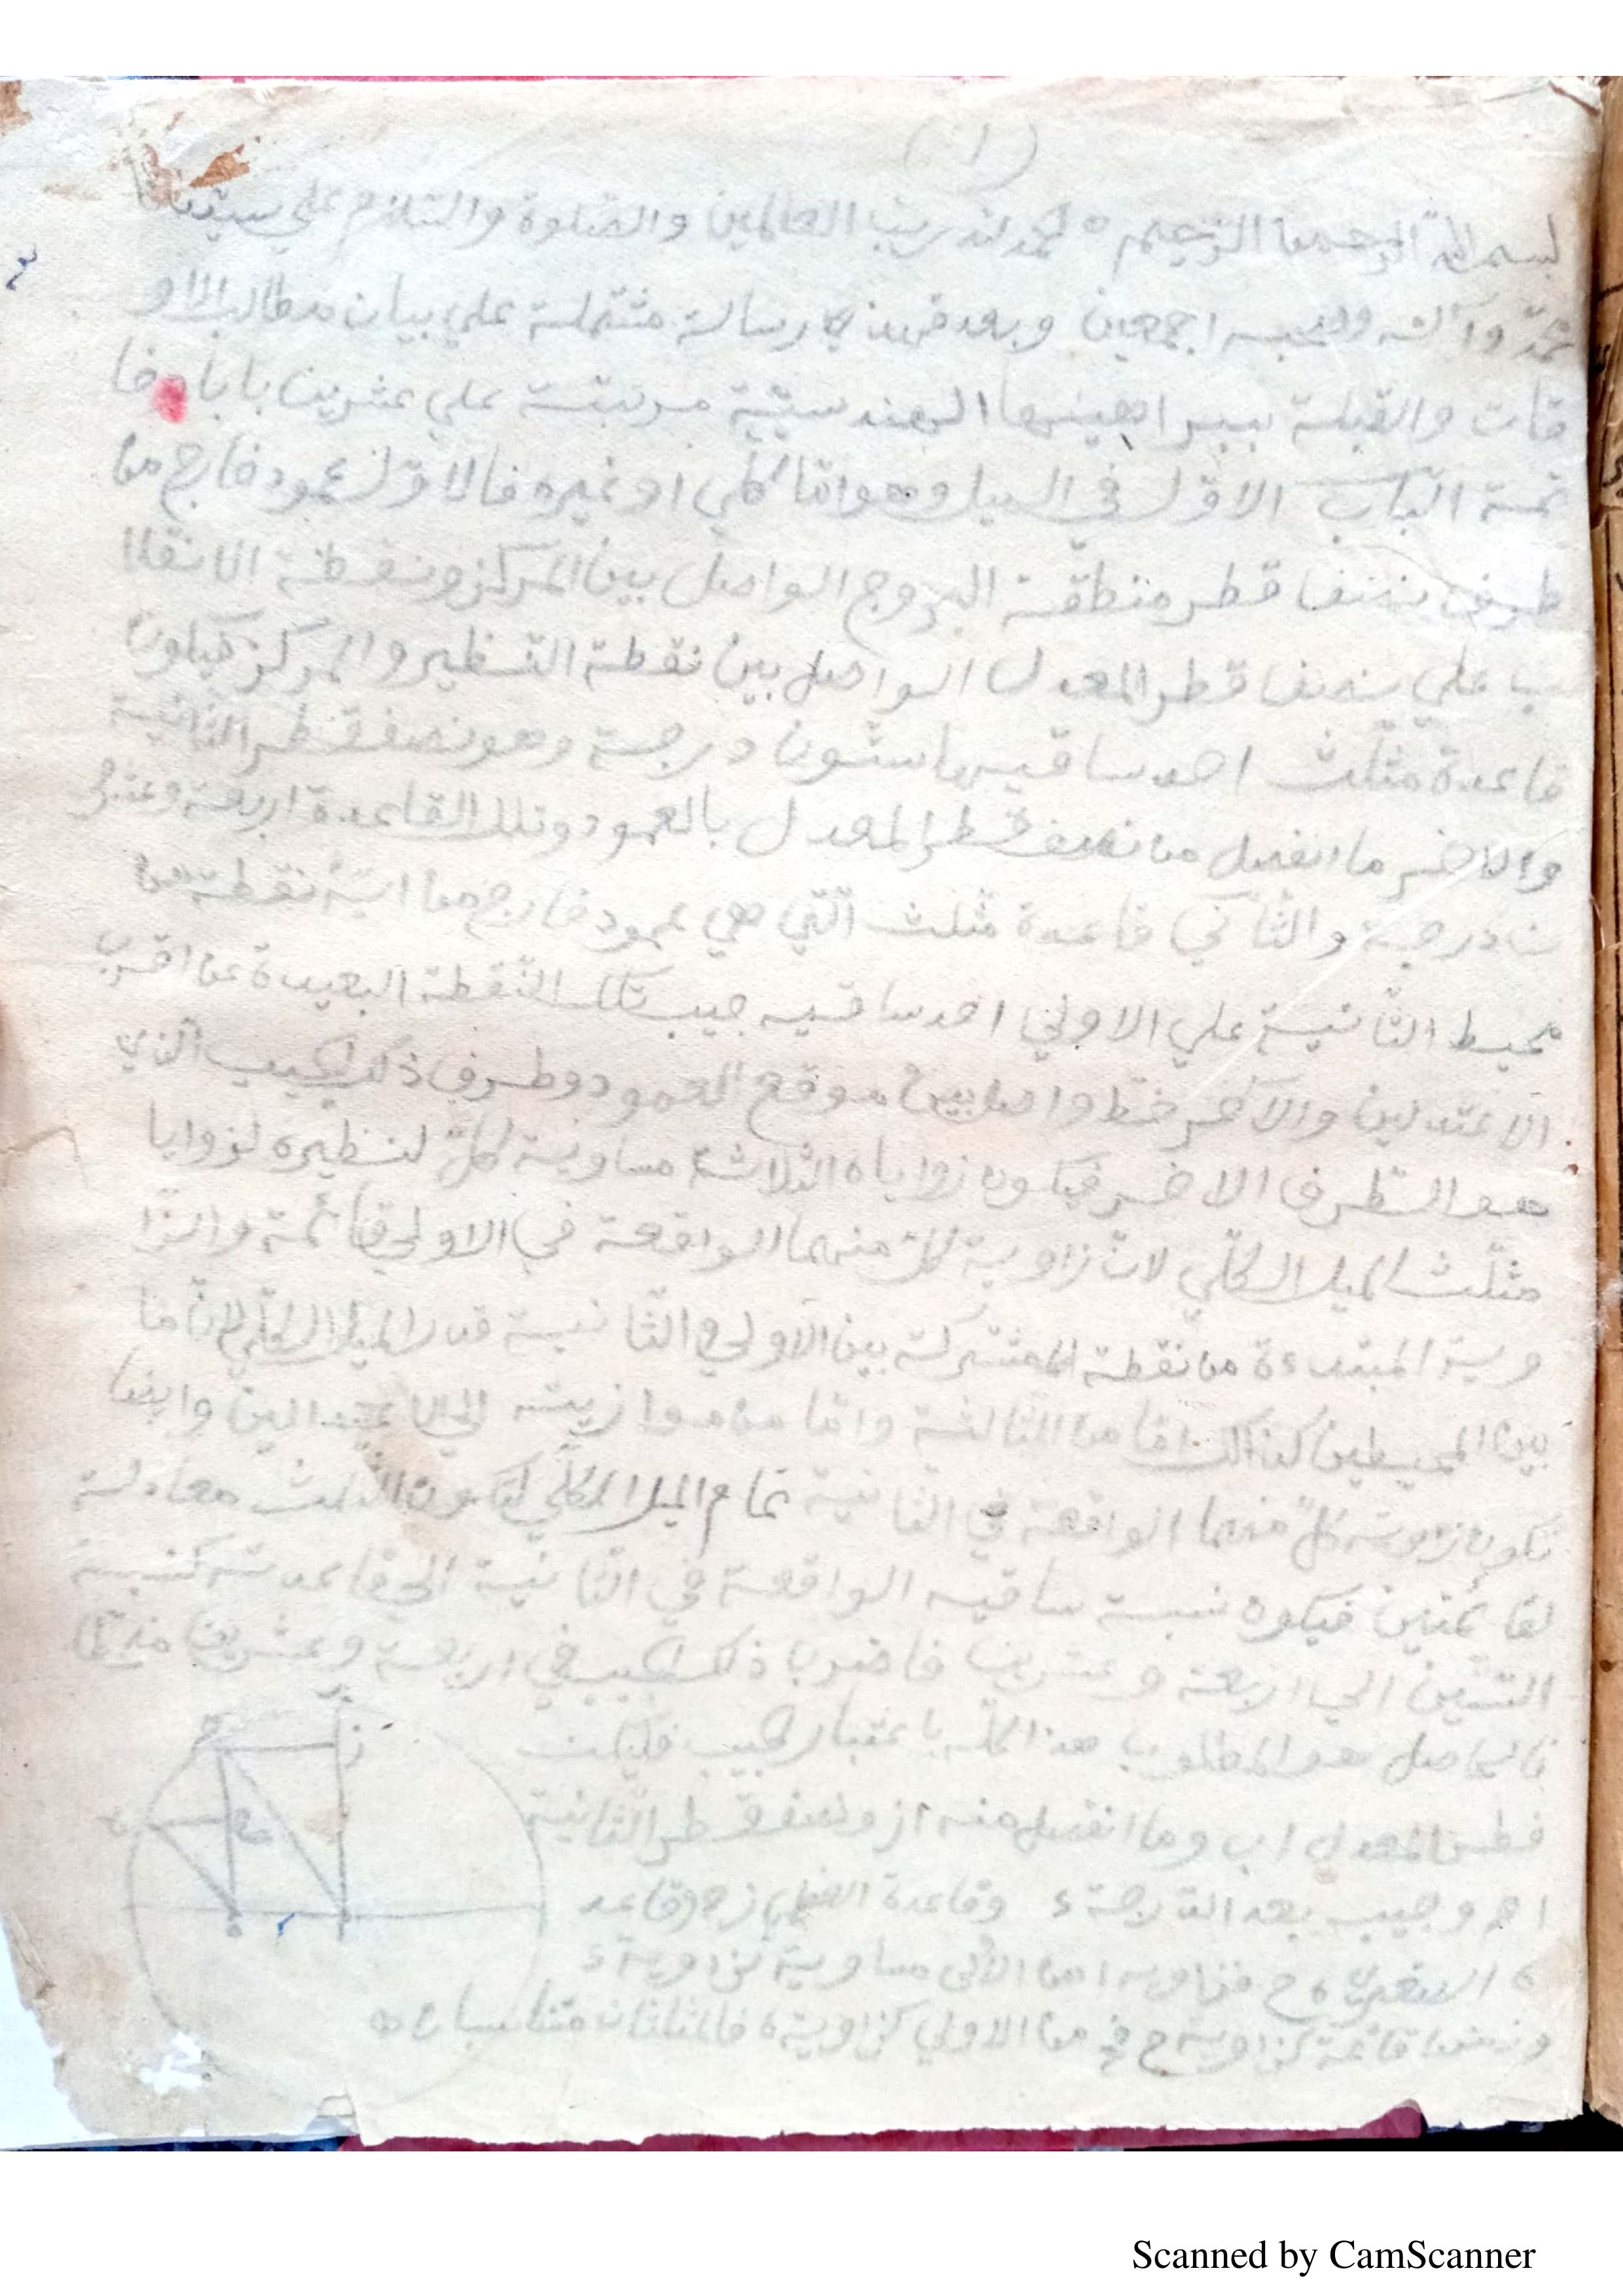 (١)
بسم الله الرحمن الرحيم ه الحمد لله رب العالمين والصلوة والسلام علي سيدنا
محمد وآله وصحبه اجمعين وبعد فهذه رسالة مشتملة علي بيان مطالب الاو
قات والقبلة ببراهينها الهندسية مرتبة علي عشرين بابا وخا
تمة الباب الاول في الميل وهو اما كلي او غيره فالاول عمود خارج من
طرف نصف قطر منطقة البروج الواصل بين المركز ونقطة الانقلا
ب علي نصف قطر المعدل الواصل بين نقطة النظير والمركز فيكون
قاعدة مثلث احد ساقيها ستون درجة وهو نصف قطر الثانية
والاخر ما انفصل من نصف قطر المعدل بالعمود وتلك القاعدة اربعة وعشرو
ن درجة والثاني قاعدة مثلث التي هي عمود خارج من اية نقطة من
محيط الثانية علي الاولي احد ساقيه جيب تلك النقطة البعيدة عن اقرب
الاعتدلين والآخر خط واصل بين موقع العمود وطرف ذلك الجيب الذي
هو الطرف الاخر فيكون زواياه الثلاثة مساوية كل لنظيره لزوايا
مثلث الميل الكلي لان زاوية كل منهما الواقعة في الاولي قائمة والزا
وية المبتدءة من نقطة المشتركة بين الاولي والثانية قدر الميل الكلي لان ما
بين المحيطين كذالك اما من الثالثة واما من موازيته الي الاعتدالين وايضا
تكون زاوية كل منهما الواقعة في الثانية تمام الميل الكلي لكون المثلث معادلة
لقائمتين فيكون نسبة ساقيه الواقعة في الثانية الي قاعدته كنسبة
الستين الي اربعة وعشرين فاضرب ذلك الجيب في اربعة وعشرين منحطا
فالحاصل هو المطلوب هذا كله باعتبار الجيب فليكن
قطر المعدل اب وما انفصل منه از ونصف قطر الثانية
اح وجيب بعد الدرجة وقاعدة العظمي زح وقاعد
ة الصغري ه ح فزاوية ا من الاولي مساوية لزاوية
ومن قائمة كزاوية ح من الاولي كزاوية ه فالمثلثان متناسبان
Scanned by CamScanner